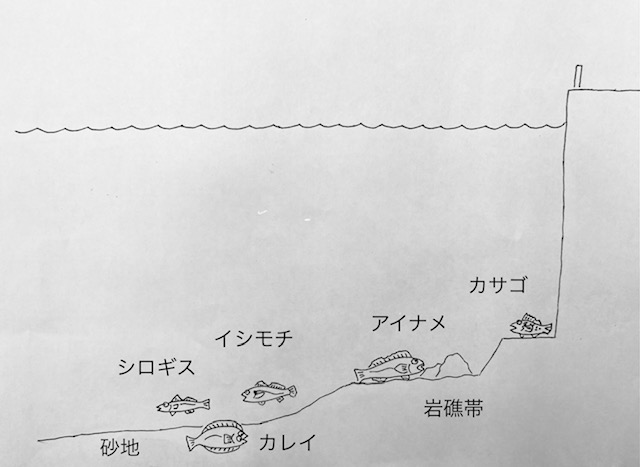 カサゴ
アイナメ
イシモチ
シロギス
岩礁帯
カレイ
砂地